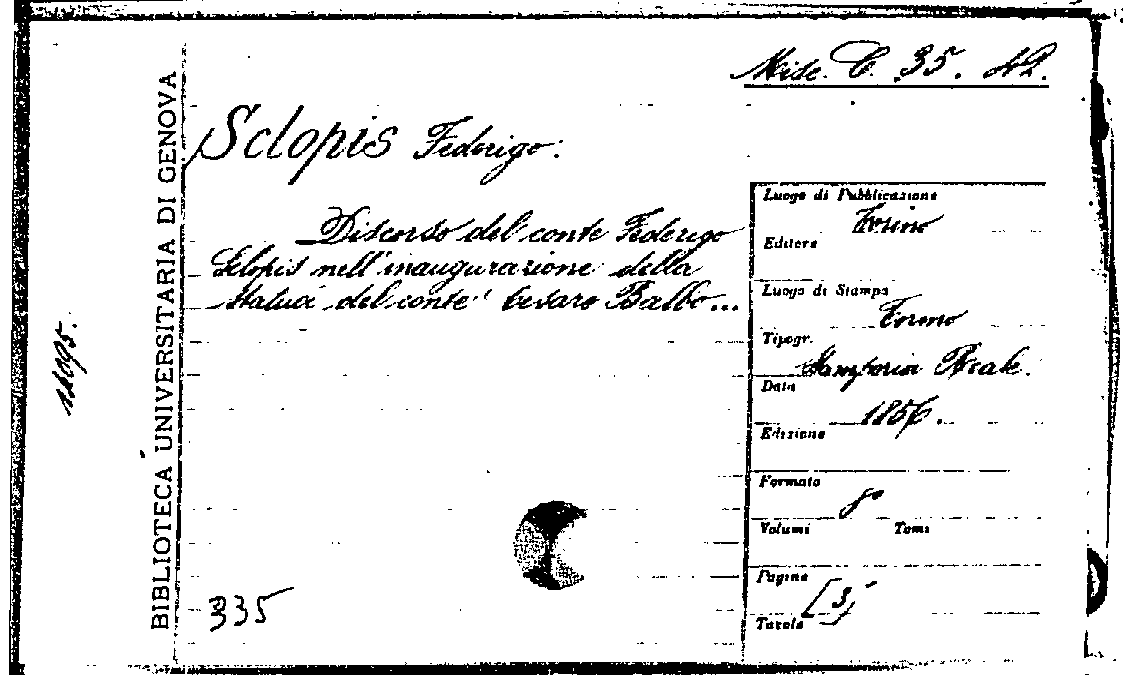 Misc. C. 35. 42.
Sclopis Federigo:
Discorso del conte Federigo
Sclopis nell'inaugurazione della
statua del conte Cesare Balbo...
BIBLIOTECA UNIVERSITARIA DI GENOVA
335
Luogo di Pubblicazione
Torino
Editore
Luogo di Stampa
Torino
Tipogr.
Stamperia Reale.
Data
1856.
Edizione
Formato
8°
Volumi Tomi
Pagine
Tavole